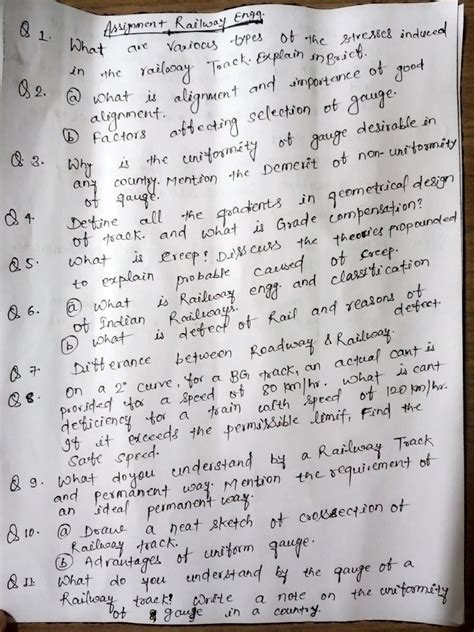 Assignment Railway Engg.
Q 1. What are various types of the stresses induced
in the railway Track. Explain in Brief.
Q 2. (a) What is alignment and importance of good
alignment.
(b) Factors affecting selection of gauge.
Q. 3. Why is the uniformity of gauge desirable in
any country. Mention the Demerit of non-uniformity
of gauge.
Q 4. Define all the gradients in geometrical design
of track. and what is Grade compensation?
Q 5. What is creep? Discuss the theories propounded
to explain probable caused of creep.
Q 6. (a) What is Railway engg. and classification
of Indian Railways.
(b) What is defect of Rail and reasons of
defect.
Q 7 Differance between Roadway & Railway.
Q 8. On a 2° curve, for a BG track, an actual cant is
provided for a speed of 80 km/hr. What is cant
deficiency for a train with speed of 120 km/hr.
If it exceeds the permissible limit, Find the
Safe speed.
Q 9. What do you understand by a Railway Track
and permanent way. Mention the requirement of
an ideal permanent way.
Q 10. (a) Draw a neat sketch of crossection of
Railway track.
(b) Advantages of uniform gauge.
Q 11. What do you understand by the gauge of a
Railway track? Write a note on the uniformity
of gauge in a country.